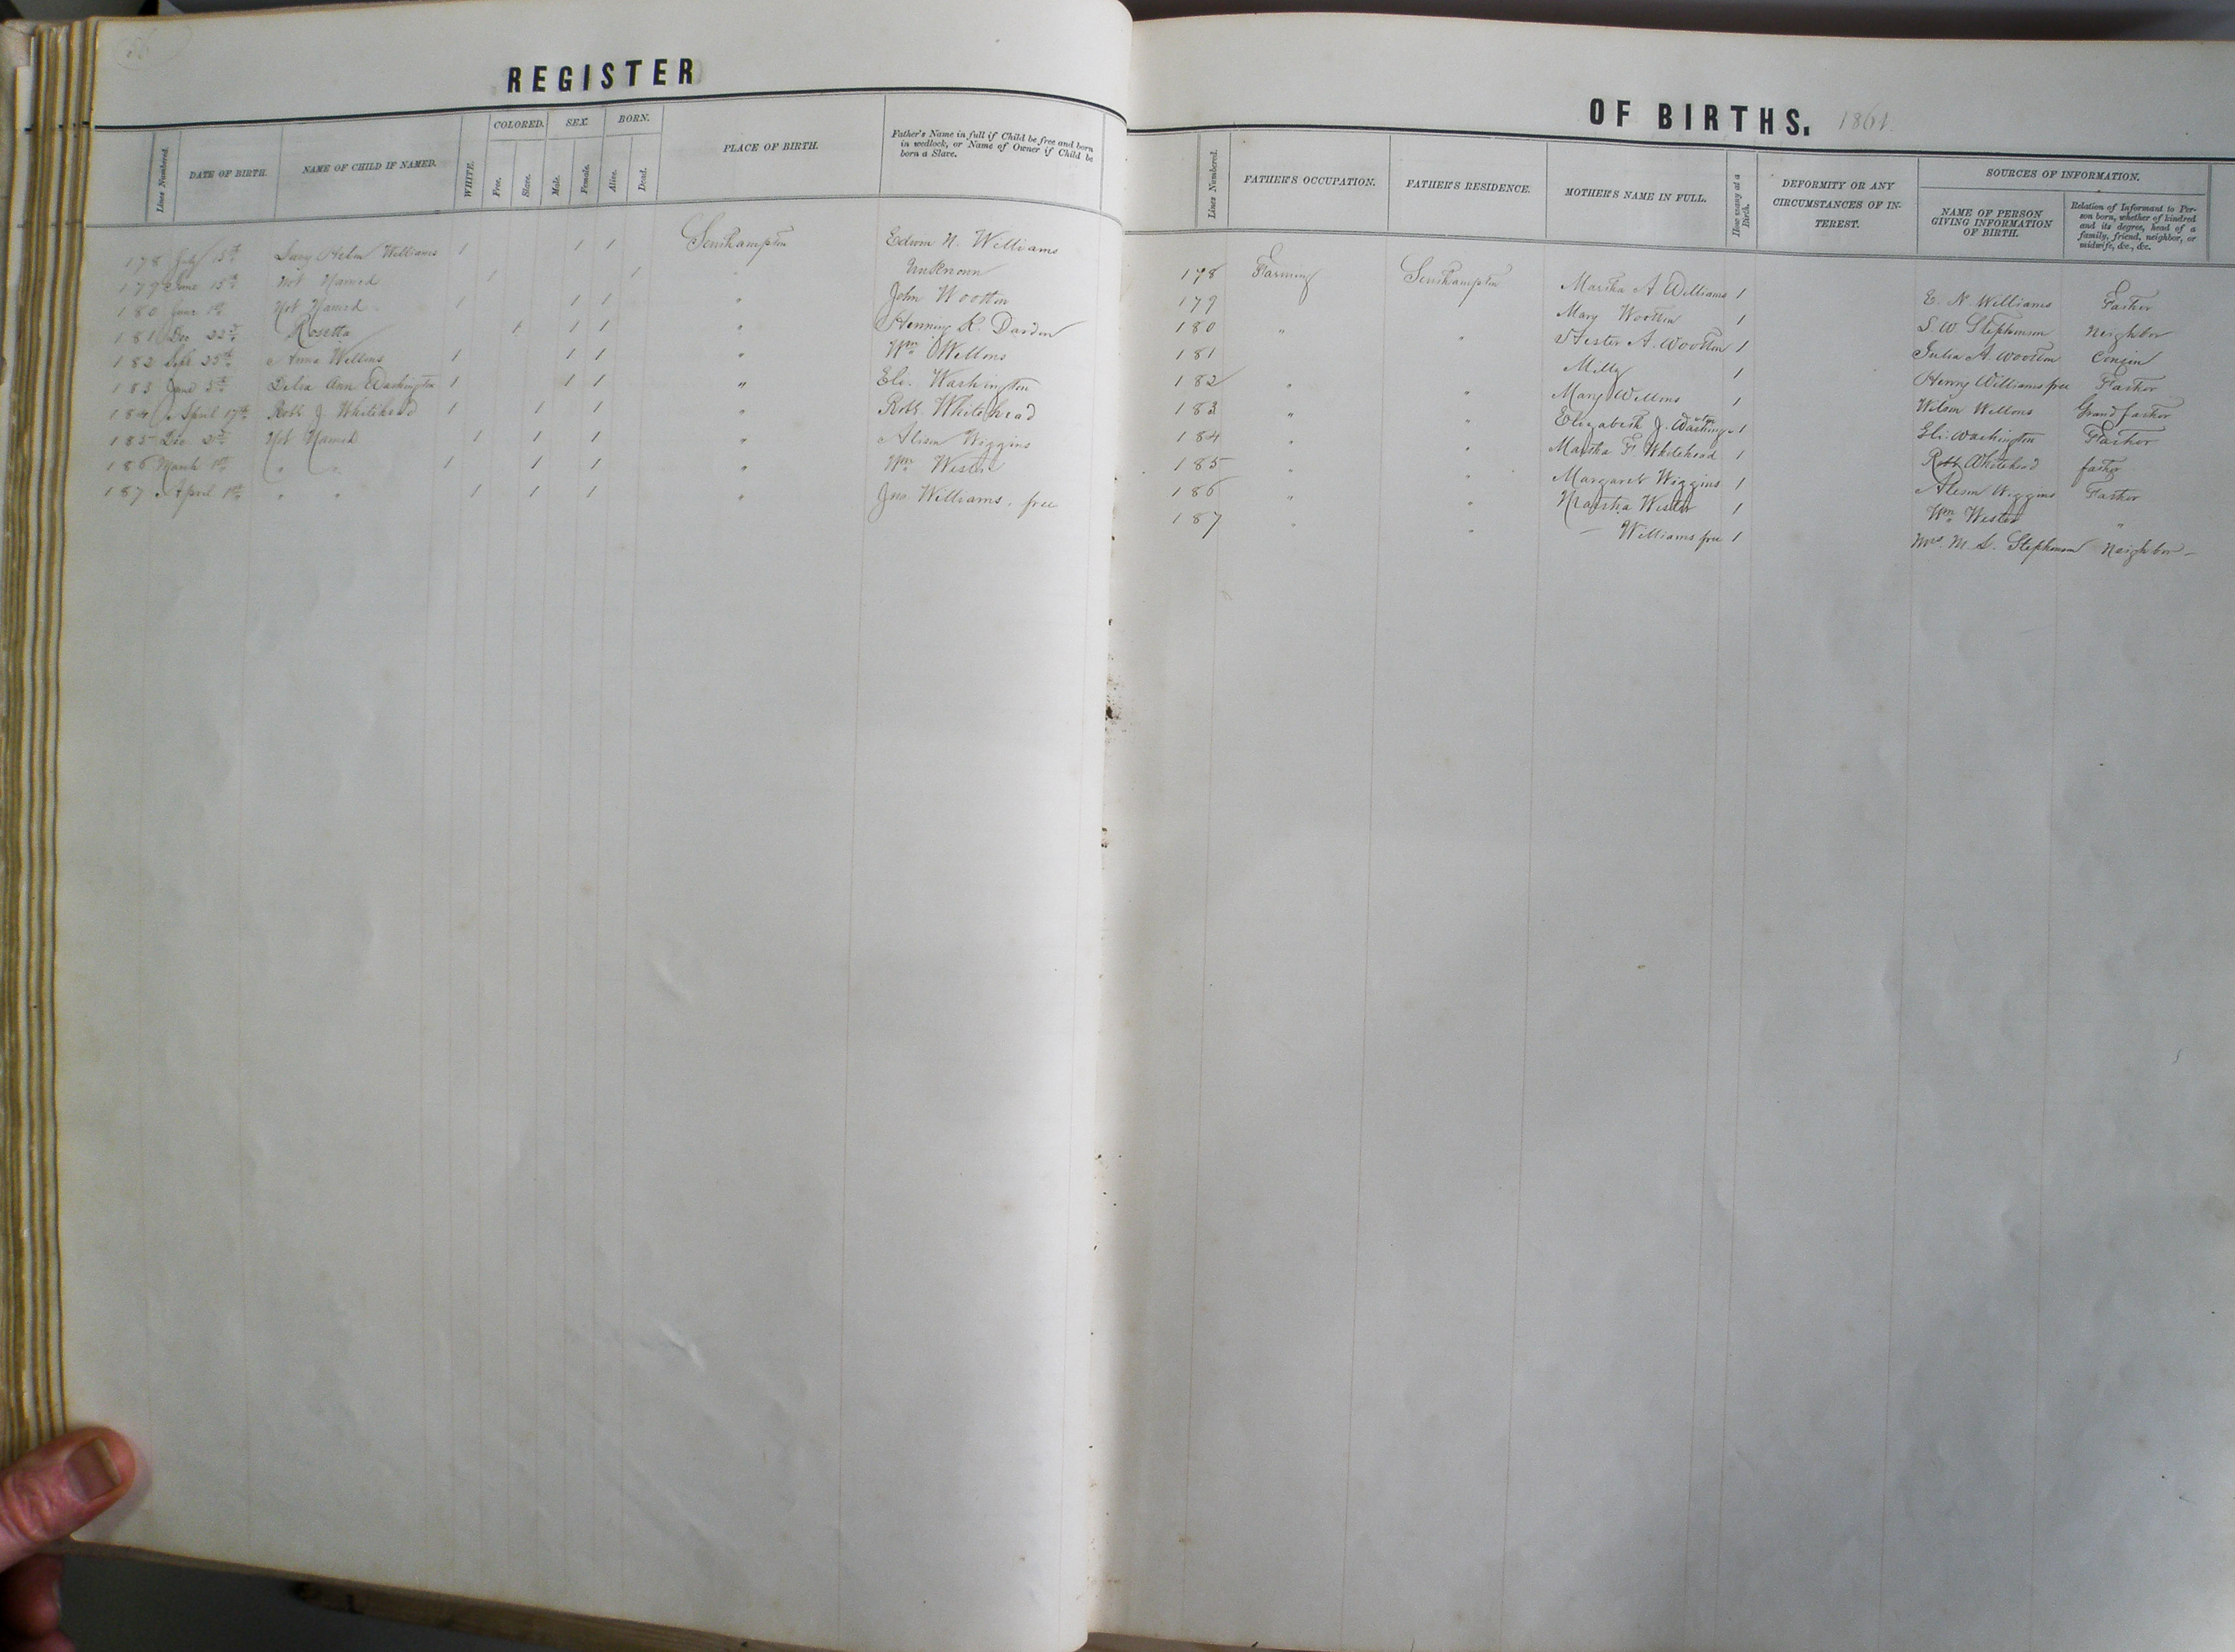 REGISTER
COLORED. SEX. BORN.
Lines Numbered. DATE OF BIRTH. NAME OF CHILD IF NAMED. WHITE. Free. Slave. Male. Female. Alive. Dead. PLACE OF BIRTH. Father's Name in full if Child be free and born in wedlock, or Name of Owner if Child be born a Slave.
178 July 15th Helen Williams 1 1 1 Southampton Edwin N. Williams
179 June 15th Not Named 1 1 " Unknown
180 1st Not Named 1 1 1 " John Wootten
181 Dec 22d Rosetta 1 1 1 " Henning R. Darden
182 Sept 25th Anna Wellons 1 1 1 " Wm Wellons
183 June 5th Delia Ann Washington 1 1 1 " Eli. Washington
184 April 17th Robt J. Whitehead 1 1 1 " Robt. Whitehead
185 Dec Not Named 1 1 1 " Wiggins
186 March 1st " " 1 1 1 " Wm Wester
187 April 1st " " 1 1 1 " Jno Williams. free
OF BIRTHS. 1861
Lines Numbered. FATHER'S OCCUPATION. FATHER'S RESIDENCE. MOTHER'S NAME IN FULL. How many at a Birth. DEFORMITY OR ANY CIRCUMSTANCES OF INTEREST. SOURCES OF INFORMATION.
NAME OF PERSON GIVING INFORMATION OF BIRTH. Relation of Informant to Person born, whether of kindred and its degree, head of a family, friend, neighbor, or midwife, &c., &c.
178 Farming Southampton Martha A Williams 1 E. N. Williams Father
179 Mary Wootten 1 S. W. Stephenson Neighbor
180 " " Hester A. Wootten 1 Julia A. Wootten Cousin
181 Milly 1 Henry Williams free Father
182 " " Mary Wellons 1 Wilson Wellons Grand father
183 " " Elizabeth J. Washington 1 Eli. Washington Father
184 " " Martha F Whitehead 1 Robt Whitehead father
185 " " Margaret Wiggins 1 Wiggins Father
186 " " Martha Wester 1 Wm Wester "
187 " " — Williams free 1 Mrs. M. L. Stephenson Neighbor